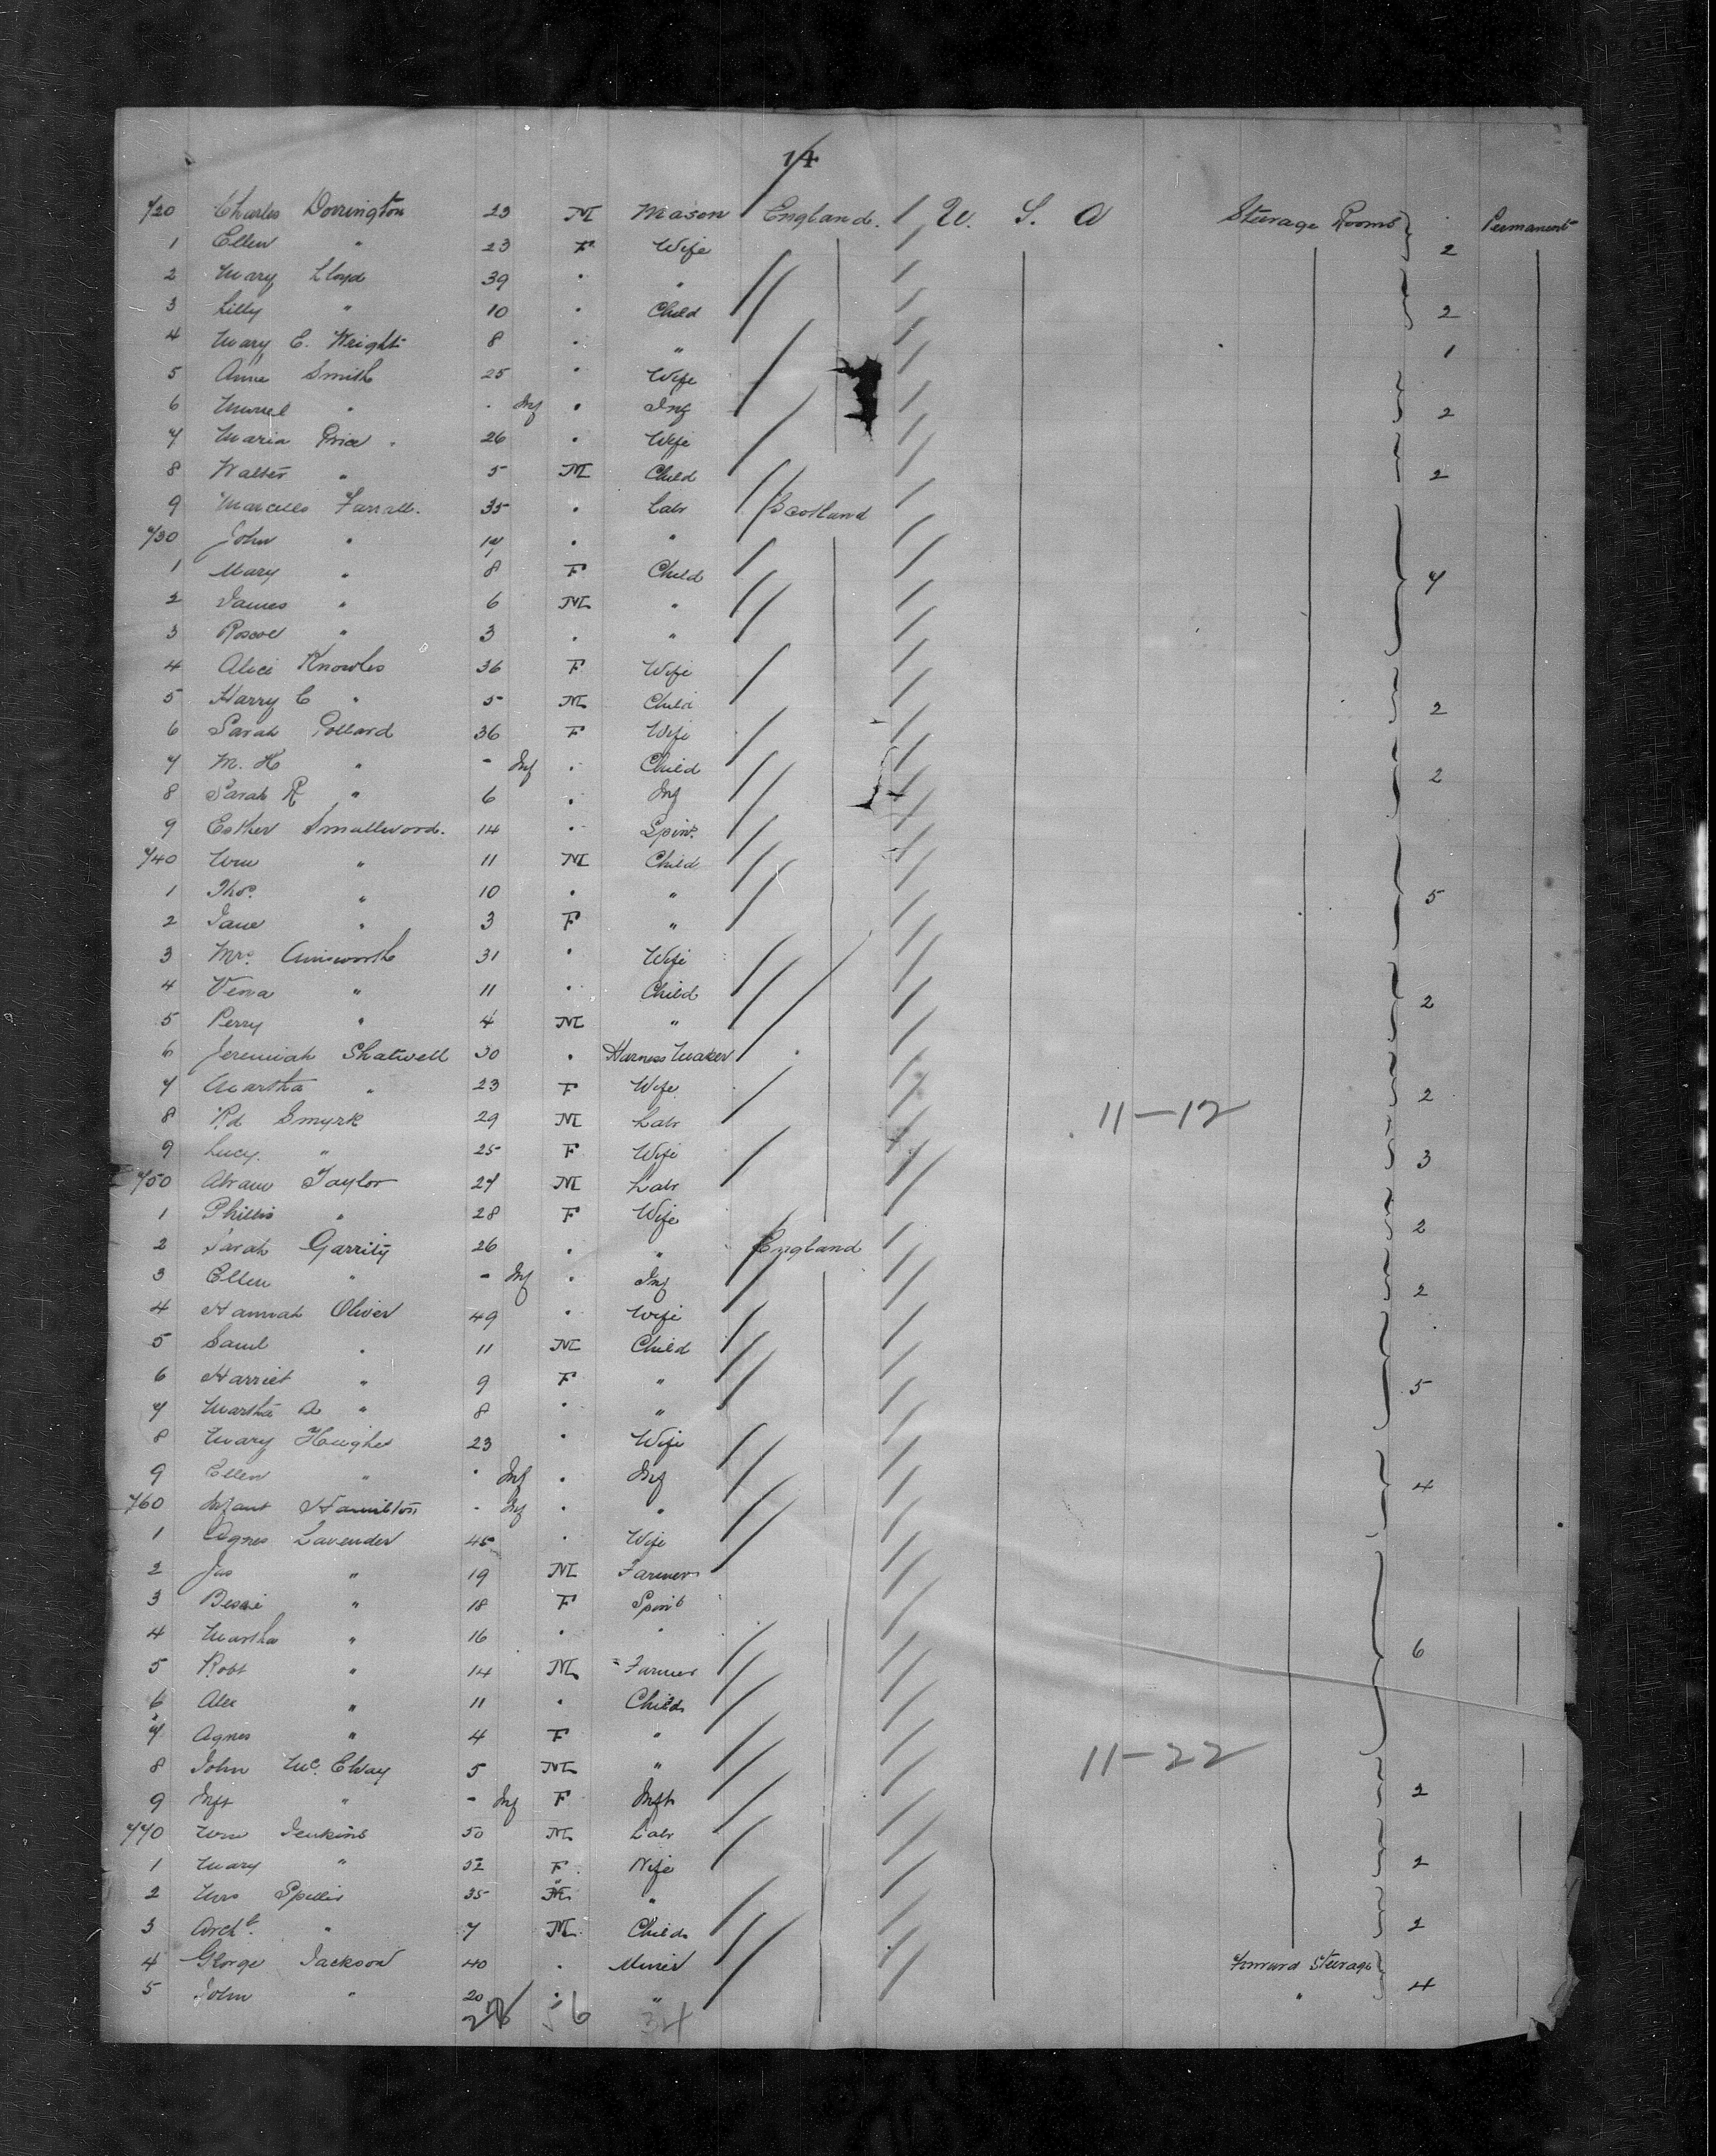 14
720 Charles Dorrington 23 M Mason England. U. S. A Steerage Rooms 2 Permanent
1 Ellen " 23 F Wife
2 Mary Lloyd 39 " "
3 Lilly " 10 " Child 2
4 Mary E. Wright 8 " " 1
5 Anne Smith 25 " Wife
6 " - Inf " Inf 2
7 Maria Price 26 " Wife
8 Walter " 5 M Child 2
9 Marcella Farrall. 35 " Labr Scotland
730 John " " "
1 Mary " 8 F Child 4
2 James " 6 M "
3 Roscoe " 3 " "
4 Alice Knowles 36 F Wife
5 Harry C " 5 M Child 2
6 Sarah Pollard 36 F Wife
7 M. H " - Inf " Child 2
8 Sarah R " 6 " Inf
9 Esther Smallwood. 14 " Spinr
740 Wm " 11 M Child
1 Thos. " 10 " " 5
2 Jane " 3 F "
3 Mrs. Ainsworth 31 " Wife
4 Verna " 11 " Child 2
5 Perry " 4 M "
6 Jeremiah Shatwell 30 " Harness Maker
7 Martha " 23 F Wife 2
8 Rd Smyrk 29 M Labr 11-12
9 Lucy. " 25 F Wife 3
750 Abram Taylor 27 M Labr
1 Phillis " 28 F Wife 2
2 Sarah Garrity 26 " " England
3 Ellen " - Inf " Inf 2
4 Hannah Oliver 49 " Wife
5 Saml " 11 M Child
6 Harriet " 9 F " 5
7 Martha A " 8 " "
8 Mary Hughes 23 " Wife
9 Ellen " - Inf " Inf 4
760 Infant Hamilton - Inf " "
1 Agnes Lavender 45 " Wife
2 Jas " 19 M Farmer
3 Bessie " 18 F Spins
4 Martha " 16 " " 6
5 Robt " 14 M Farmer
6 Alex " 11 " Child
7 Agnes " 4 F "
8 John Mc. Elvay 5 M " 11-22
9 Inft " - Inf F Inft 2
770 Wm Jenkins 50 M Labr
1 Mary " 52 F Wife 2
2 Mrs 35 "
3 Archd. " 7 M Child 2
4 George Jackson 40 " Miner Forward Steerage
5 John " 20 " " " 4